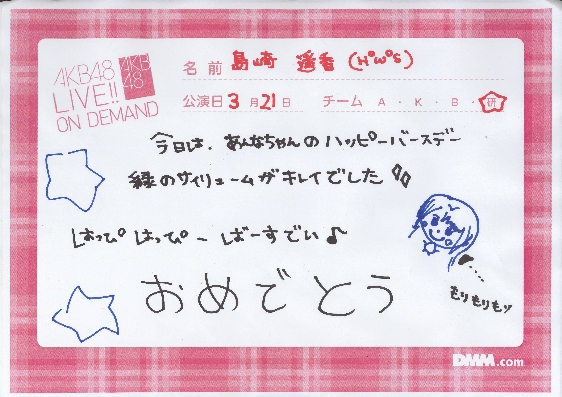 AKB48
LIVE!!
ON DEMAND
AKB
48
名前 島崎 遥香 (H°ω°S)
公演日 3月21日 チーム A・K・B・研
今日は、あんなちゃんのハッピーバースデー
緑のサイリュームがキレイでした
はっぴ° はっぴ°ー ばーすでい♪
おめでとう
もりもりもり
DMM.com